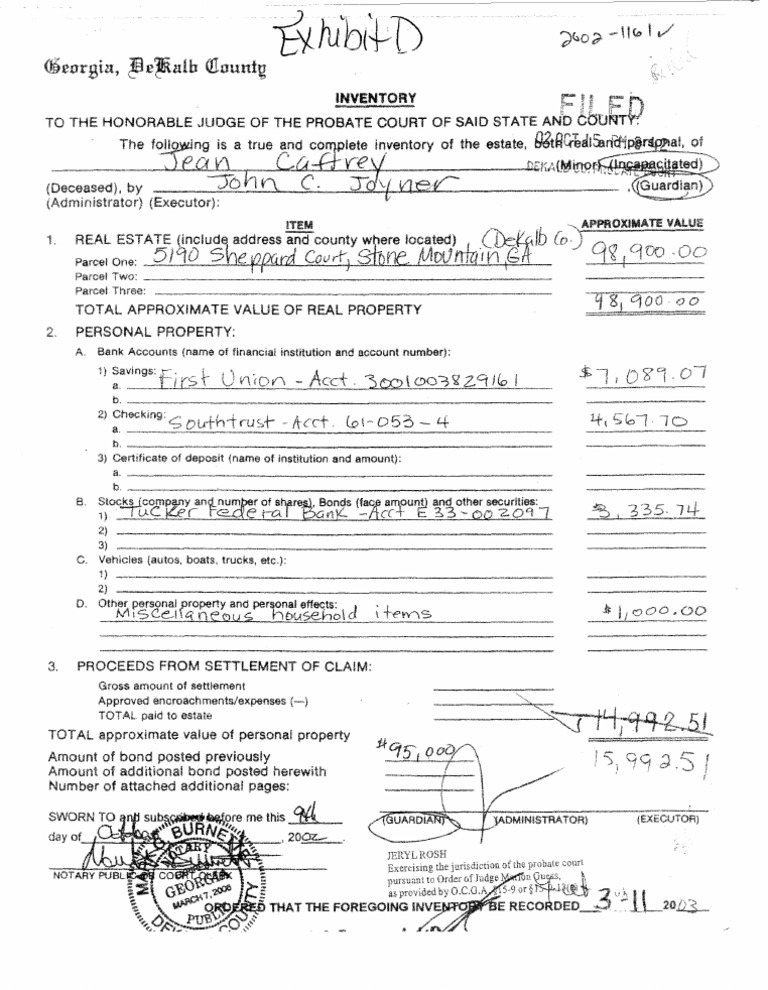 Exhibit D
2002-1161 ✓
Georgia, DeKalb County
INVENTORY
FILED
TO THE HONORABLE JUDGE OF THE PROBATE COURT OF SAID STATE AND COUNTY:
The following is a true and complete inventory of the estate, both real and personal, of
Jean Caffrey (Minor) (Incapacitated)
(Deceased), by John C. Joyner, (Guardian)
(Administrator) (Executor):
ITEM APPROXIMATE VALUE
1. REAL ESTATE (include address and county where located) (DeKalb Co.)
Parcel One: 5190 Sheppard Court, Stone Mountain, GA 98,900.00
Parcel Two:
Parcel Three:
TOTAL APPROXIMATE VALUE OF REAL PROPERTY 98,900.00
2. PERSONAL PROPERTY:
A. Bank Accounts (name of financial institution and account number):
1) Savings:
a. First Union - Acct. 3001003829161 $7,089.07
b.
2) Checking:
a. Southtrust - Acct. 61-053-4 4,567.70
b.
3) Certificate of deposit (name of institution and amount):
a.
b.
B. Stocks (company and number of shares), Bonds (face amount) and other securities:
1) Tucker Federal Bank - Acct E33-002097 3,335.74
2)
3)
C. Vehicles (autos, boats, trucks, etc.):
1)
2)
D. Other personal property and personal effects:
Miscellaneous household items $1,000.00
3. PROCEEDS FROM SETTLEMENT OF CLAIM:
Gross amount of settlement
Approved encroachments/expenses (—)
TOTAL paid to estate
14,992.51
TOTAL approximate value of personal property 15,992.51
Amount of bond posted previously $95,000
Amount of additional bond posted herewith
Number of attached additional pages:
SWORN TO and subscribed before me this 9th
day of October, 2002
(GUARDIAN) (ADMINISTRATOR) (EXECUTOR)
NOTARY PUBLIC OR COURT CLERK
BURNETT
NOTARY
GEORGIA
MARCH 7, 2006
PUBLIC
COUNTY
JERYL ROSH
Exercising the jurisdiction of the probate court
pursuant to Order of Judge Marion Guess,
as provided by O.C.G.A. §15-9
ORDERED THAT THE FOREGOING INVENTORY BE RECORDED 3-11 2003